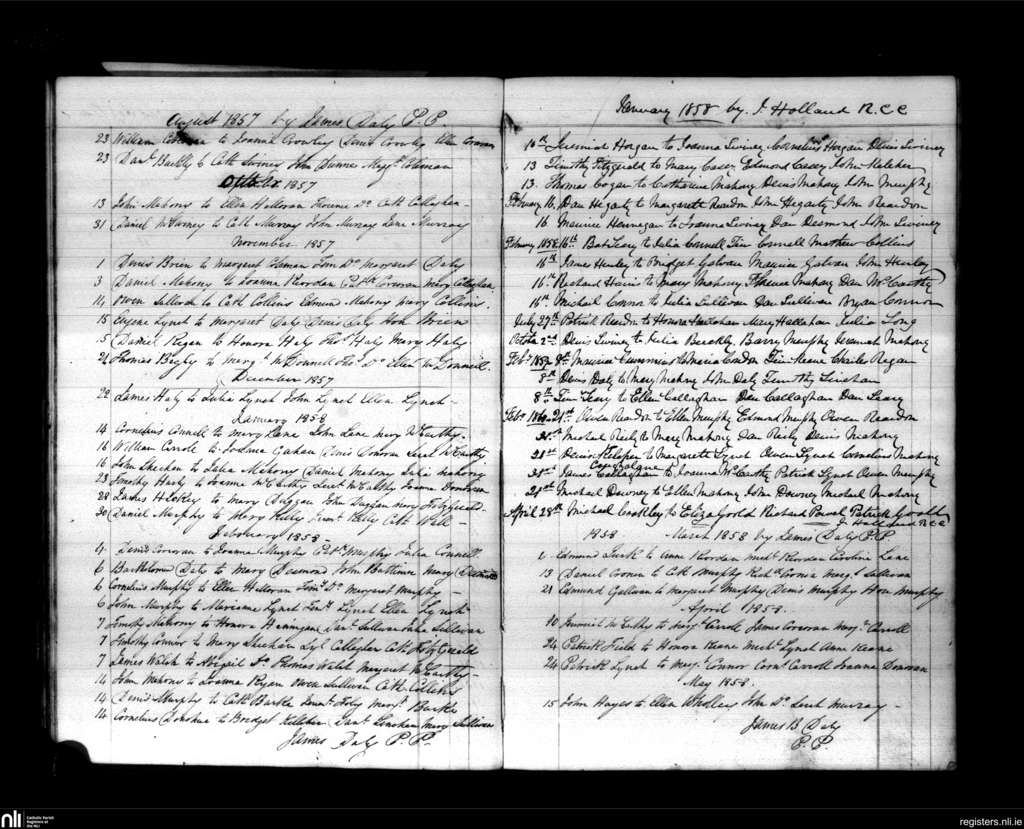 August 1857 by James Daly P.P.
23 William Coleman to Joanna Crowley Denis Crowley Ellen
23 Danl. Buckly to Cath Swiney John Dunnea Margt. Coleman
October 1857
13 John Mahony to Ellen Halloran Florence Do Cath Callaghan
31 Daniel McCarney to Cath Murray John Murray Lane Murray
November 1857
1 Denis Brien to Margaret Do Margaret Daly
3 Daniel Mahony to Joanna Riordan Corcoran Mary Callaghan
14 Owen Sullivan to Cath Collins Edmund Mahony Mary Collins
15 Eugene Lynch to Margaret Daly Denis Daly Hon Brien
5 Daniel Regan to Honora Haly Thos Haly Mary Haly
26 Thomas Begly to Margt. McDonnell Thos Do Ellen McDonnell
December 1857
22 James Haly to Julia Lynch John Lynch Ellen Lynch
January 1858
14 Cornelius Connell to Mary Lane John Lane Mary McCarthy
16 William Carroll to Joanna Gahan Denis Donovan McCarthy
16 John Sheehan to Julia Mahony Daniel Mahony Julia Mahony
23 Timothy Harty to Joanna McCarthy McCarthy Joanna Donovan
28 James Hickey to Mary Duggan John Duggan Mary Fitzgerald
30 Daniel Murphy to Mary Kelly Kelly Cath
February 1858
4 Denis Corcoran to Joanna Murphy Patk Murphy Julia Connell
6 Bartholomew Daly to Mary Desmond John Buttimer Mary Desmond
6 Cornelius Murphy to Ellen Halloran Do Margaret Murphy
6 John Murphy to Marianne Lynch Lynch Ellen Lynch
7 Timothy Mahony to Honora Hennigan Danl. Sullivan Sullivan
7 Timothy Connor to Mary Sheehan Callaghan Cath Fitzgerald
7 James Walsh to Abigail Do Thomas Walsh Margaret McCarthy
14 John Mahony to Joanna Ryan Owen Sullivan Cath Collins
14 Denis Murphy to Cath Burke Foley Margt. Burke
14 Cornelius Donohue to Bridget Kelleher Danl. Mary Sullivan
James Daly P.P.
January 1858 by J Holland R.C.C
10th Jeremiah Horgan to Joanna Swiney Cornelius Horgan Denis Swiney
13 Timothy Fitzgerald to Mary Casey Edmond Casey John Keleher
13 Thomas Cogan to Catharine Mahony Denis Mahony John Murphy
February 16 Dan Hegarty to Margareth Reardon John Hegarty John Reardon
16 Maurice Hennegan to Joanna Swiney Dan Desmond John Swiney
February 1858 16th Bat Leary to Julia Connell Tim Connell Mathew Collins
16th James Henley to Bridget Galvan Maurice Galvan John Henley
16th Richard Harris to Mary Mahony Florence Mahony Dan McCarthy
16th Michael Connor to Julia Sullivan Dan Sullivan Bryan Connor
July 27th Patrick Reardon to Honora Hallahan Mary Hallahan Julia Long
October 2nd Denis Swiney to Julia Buckly Barry Murphy Jeremiah Mahony
Feby 8th Maurice Cummins to Maria Condon Tim Keane Charles Regan
8th Denis Daly to Mary Mahony John Daly Timothy Linehan
8th Tim Leary to Ellen Callaghan Den Callaghan Dan Leary
Feby 21st Owen Reardon to Ellen Murphy Edmond Murphy Owen Reardon
21st Michael Riely to Mary Mahony Dan Riely Denis Mahony
21st Denis Keleher to Margareth Lynch Owen Lynch Cornelius Mahony
21st James Callaghan to Joanna McCarthy Patrick Lynch Owen Murphy
21st Michael Downey to Ellen Mahony John Downey Michael Mahony
April 28th Michael Coakley to Eliza Goold Richard Patrick Goold
J Holland R.C.C
1858 March 1858 by James Daly P.P.
6 Edmund to Anne Riordan Michl. Riordan Lane
13 Daniel Cronin to Cath Murphy Richd. Cronin Margt. Sullivan
21 Edmund Gallivan to Margaret Murphy Denis Murphy Hon Murphy
April 1858.
10 Jeremiah McCarthy to Margt. Carroll James Corcoran Margt. Carroll
24 Patrick Field to Honora Keane Michl. Lynch Anne Keane
24 Patrick Lynch to Margt. Connor Corns. Carroll Joanna Donovan
May 1858.
15 John Hayes to Ellen Wholley John Do Murray
James B Daly
P.P.
nli
Catholic Parish
Registers at
the NLI
registers.nli.ie